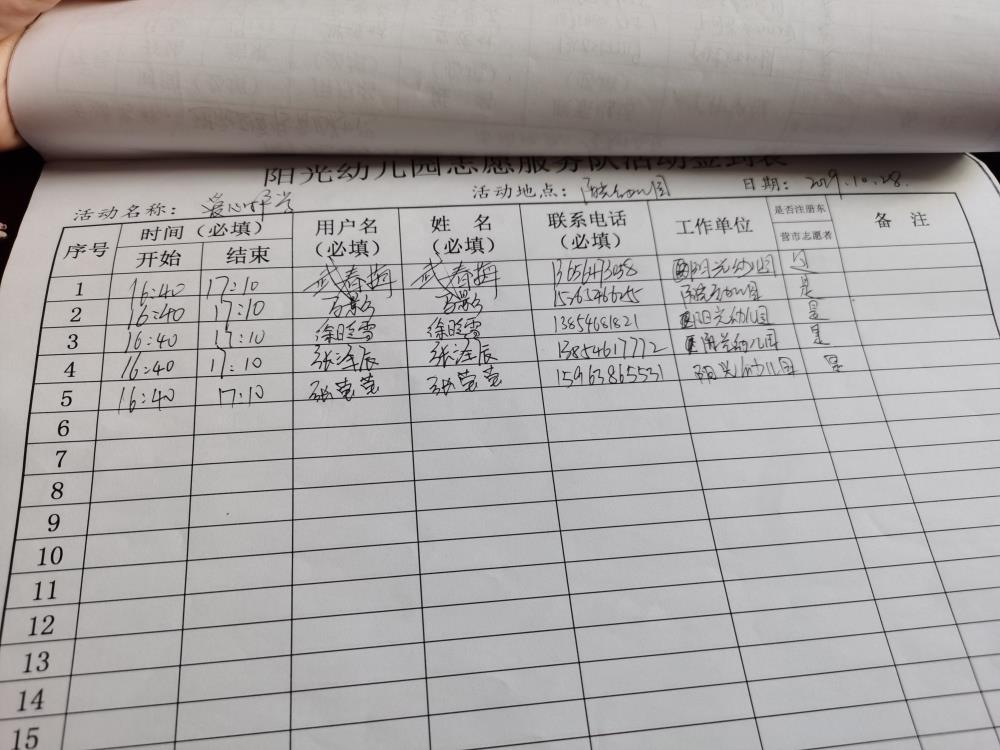 阳光幼儿园志愿服务队活动签到表
活动名称: 爱心 活动地点: 日期: 2019.10.28.
序号 时间(必填) 用户名(必填) 姓名(必填) 联系电话(必填) 工作单位 是否注册东营市志愿者 备注
开始 结束
1 16:40 17:10 武春梅 武春梅 阳光幼儿园
2 16:40 17:10 是
3 16:40 17:10 徐晓雪 徐晓雪 13854681821 阳光幼儿园 是
4 16:40 17:10 张泽辰 张泽辰 13854617772 阳光幼儿园 是
5 16:40 17:10 张莹莹 张莹莹 15963865531 阳光幼儿园 是
6
7
8
9
10
11
12
13
14
15